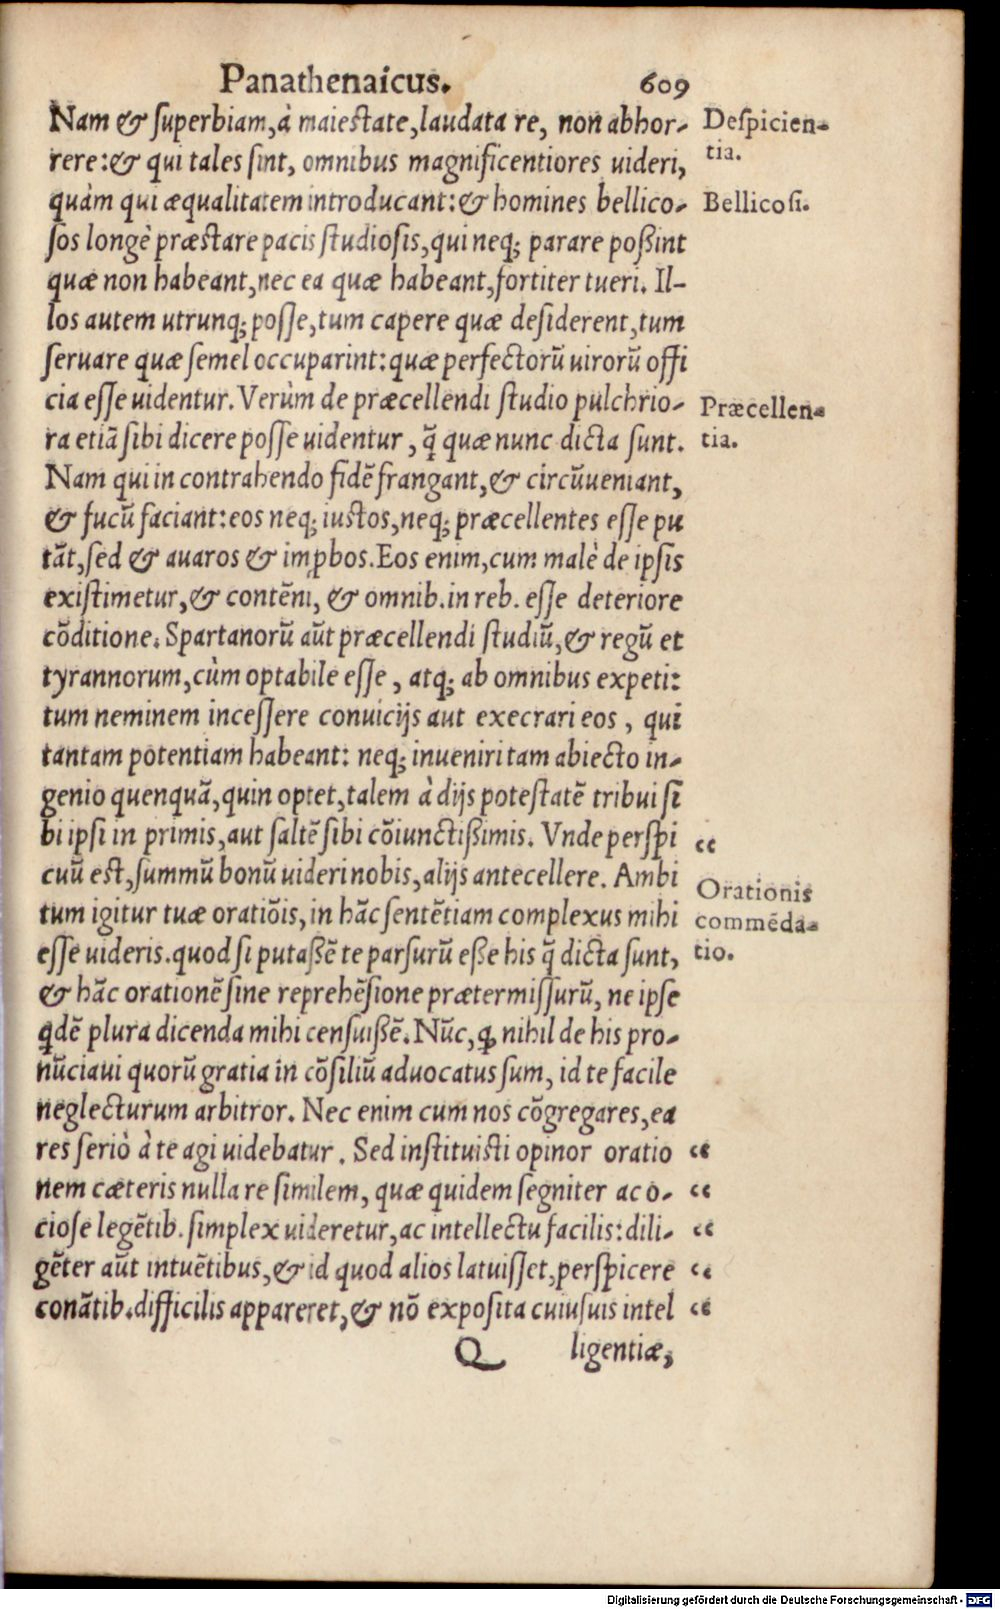 Panathenaicus. 609
Nam & ſuperbiam, à maieſtate, laudata re, non abhor-
rere: & qui tales ſint, omnibus magnificentiores uideri,
quàm qui æqualitatem introducant: & homines bellico-
ſos longè præſtare pacis ſtudioſis, qui neq; parare poßint
quæ non habeant, nec ea quæ habeant, fortiter tueri. Il-
los autem utrunq; poſſe, tum capere quæ deſiderent, tum
ſeruare quæ ſemel occuparint: quæ perfectorū uirorū offi
cia eſſe uidentur. Verùm de præcellendi ſtudio pulchrio-
ra etiā ſibi dicere poſſe uidentur, q̃ quæ nunc dicta ſunt.
Nam qui in contrahendo fidē frangant, & circūueniant,
& fucū faciant: eos neq; iuſtos, neq; præcellentes eſſe pu
tāt, ſed & auaros & imꝑbos. Eos enim, cum malè de ipſis
exiſtimetur, & contēni, & omnib. in reb. eſſe deteriore
cōditione. Spartanorū aūt præcellendi ſtudiū, & regū et
tyrannorum, cùm optabile eſſe, atq; ab omnibus expeti:
tum neminem inceſſere conuicijs aut execrari eos, qui
tantam potentiam habeant: neq; inueniri tam abiecto in-
genio quenquā, quin optet, talem à dijs poteſtatē tribui ſi
bi ipſi in primis, aut ſaltē ſibi cōiunctißimis. Vnde perſpi
cuū eſt, ſummū bonū uideri nobis, alijs antecellere. Ambi
tum igitur tuæ oratiōis, in hāc ſentētiam complexus mihi
eſſe uideris. quod ſi putaßē te parſurū eße his q̃ dicta ſunt,
& hāc orationē ſine reprehēſione prætermiſſurū, ne ipſe
q̃dē plura dicenda mihi cenſuißē. Nūc, ꝙ nihil de his pro-
nūciaui quorū gratia in cōſiliū aduocatus ſum, id te facile
neglecturum arbitror. Nec enim cum nos cōgregares, ea
res ſeriò à te agi uidebatur. Sed inſtituiſti opinor oratio
nem cæteris nulla re ſimilem, quæ quidem ſegniter ac o-
cioſe legētib. ſimplex uideretur, ac intellectu facilis: dili-
gēter aūt intuētibus, & id quod alios latuiſſet, perſpicere
conātib. difficilis appareret, & nō expoſita cuiuſuis intel
Q ligentiæ,
Deſpicien-
tia.
Bellicoſi.
Præcellen-
tia.
“
Orationis
commēda-
tio.
“
“
“
“
“
Digitalisierung gefördert durch die Deutsche Forschungsgemeinschaft - DFG